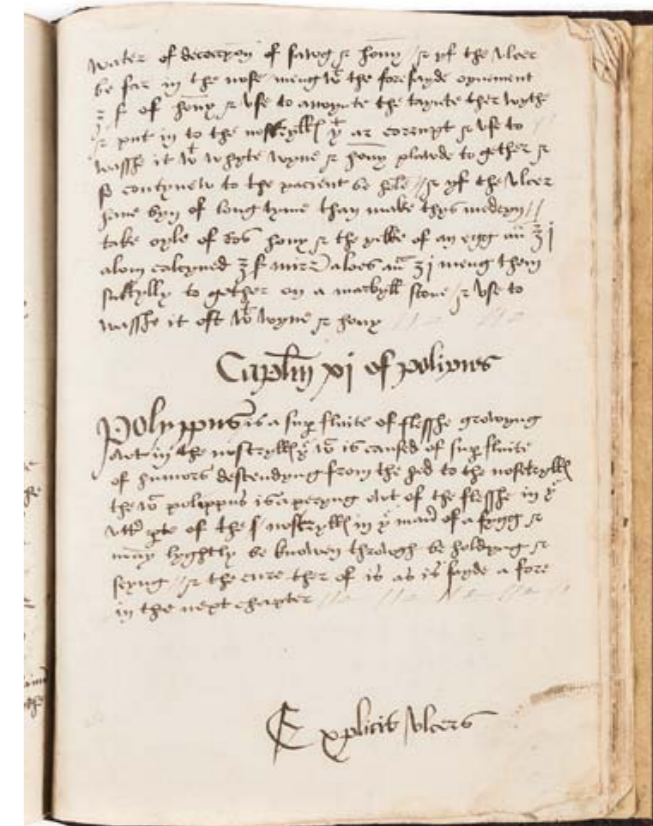 water of decoccyon of sawg & hony // & yf the vlcer
be far in the nose meng wt the foresayde oynement
ʒ f of hony & vse to anoynte the taynte ther wythe
& put in to the nostryll yt ar corrupt & vse to
wasshe it wt whyte wyne & hony to gether &
so contynew to the pacient be hole // & yf the vlcer
haue byn of long tyme than make thys medecyn //
take oyle of ros hony & the yolke of an egg an ʒ j
alom calcyned ʒ f mirr aloes an ʒ j meng them
suttylly to gether on a marbyll stone & vse to
wasshe it oft wt wyne & hony
Caplm xj of polipus
Polyppus is a supfluite of flesshe growyng
owt in the nostryll & is caused of supfluite
of humors descendyng from the hed to the nosetryll
the polippus is aperyng owt of the flesshe in yt
pte of the nostryll in yt of a fygg &
may lyghtly be knowen through be holdyng &
seyng // & the cure ther of is as is sayde a fore
in the next chapter
Explicit vlcers